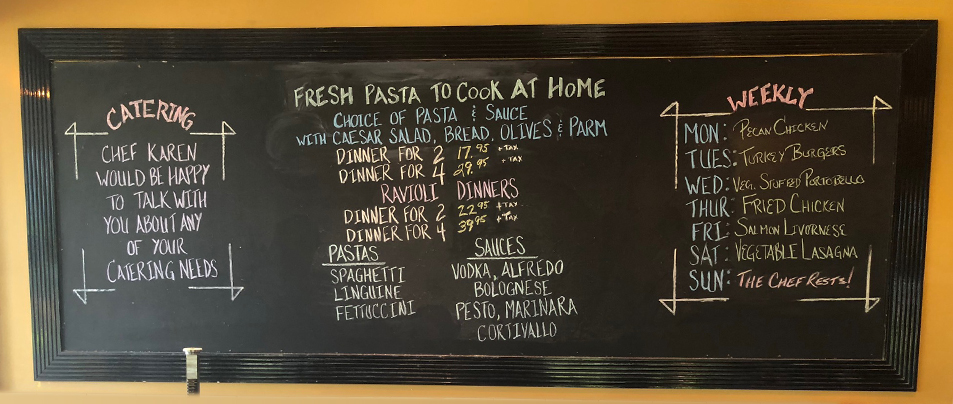 CATERING
CHEF KAREN
WOULD BE HAPPY
TO TALK WITH
YOU ABOUT ANY
OF YOUR
CATERING NEEDS
FRESH PASTA TO COOK AT HOME
CHOICE OF PASTA & SAUCE
WITH CAESAR SALAD, BREAD, OLIVES & PARM
DINNER FOR 2 17.95 + TAX
DINNER FOR 4 29.95 + TAX
RAVIOLI DINNERS
DINNER FOR 2 22.95 + TAX
DINNER FOR 4 39.95 + TAX
PASTAS
SPAGHETTI
LINGUINE
FETTUCCINI
SAUCES
VODKA, ALFREDO
BOLOGNESE
PESTO, MARINARA
CORTIVALLO
WEEKLY
MON: PECAN CHICKEN
TUES: TURKEY BURGERS
WED: VEG. STUFFED PORTOBELLO
THUR: FRIED CHICKEN
FRI: SALMON LIVORNESE
SAT: VEGETABLE LASAGNA
SUN: THE CHEF RESTS!